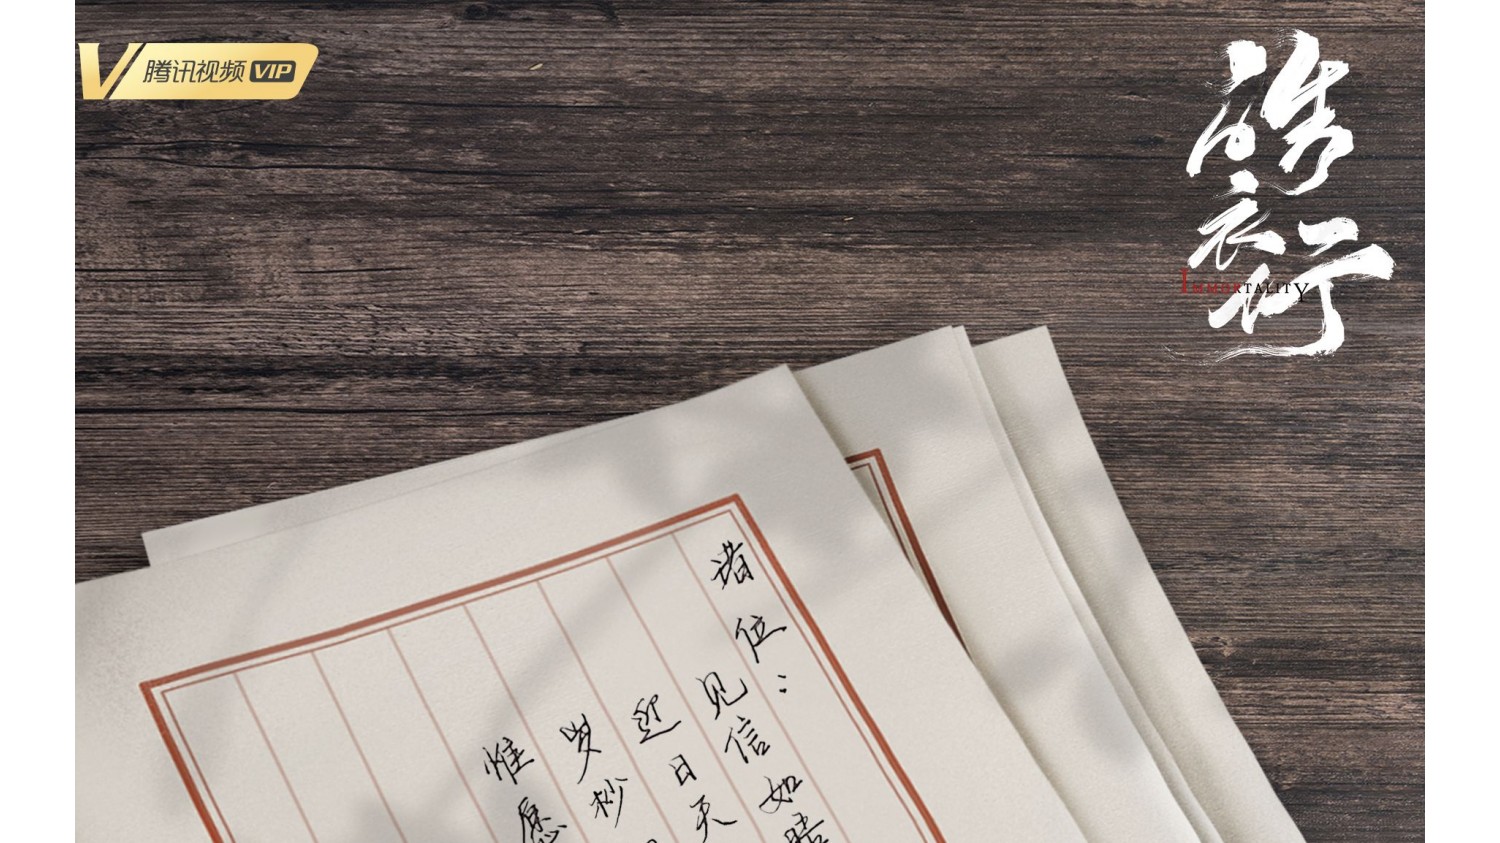 腾讯视频 VIP
皓衣行
IMMORTALITY
诸位：
见信如晤
近日天
岁杪
惟愿